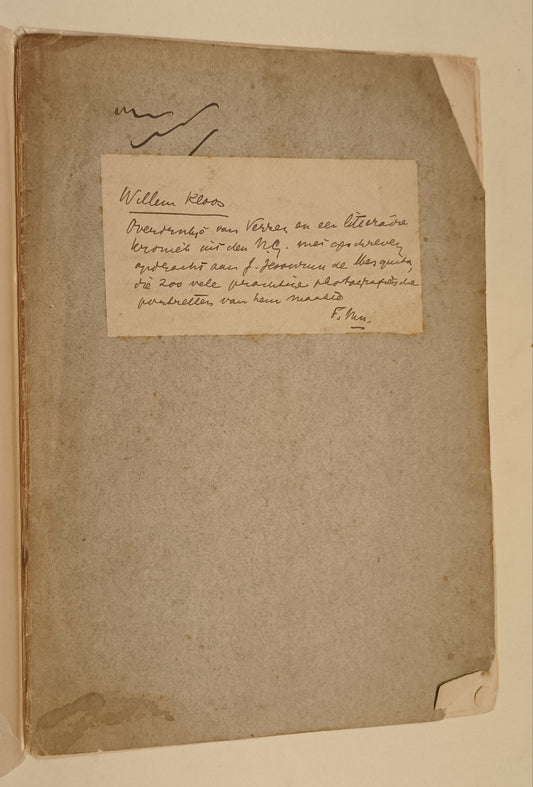 Willem Kloos
Overdrukje van Verzen en een literaire
kroniek uit den N.G. met geschreven
opdracht aan J. Jessurun de Mesquita,
die zoo vele prachtige photografische
portretten van hem maakte
F.